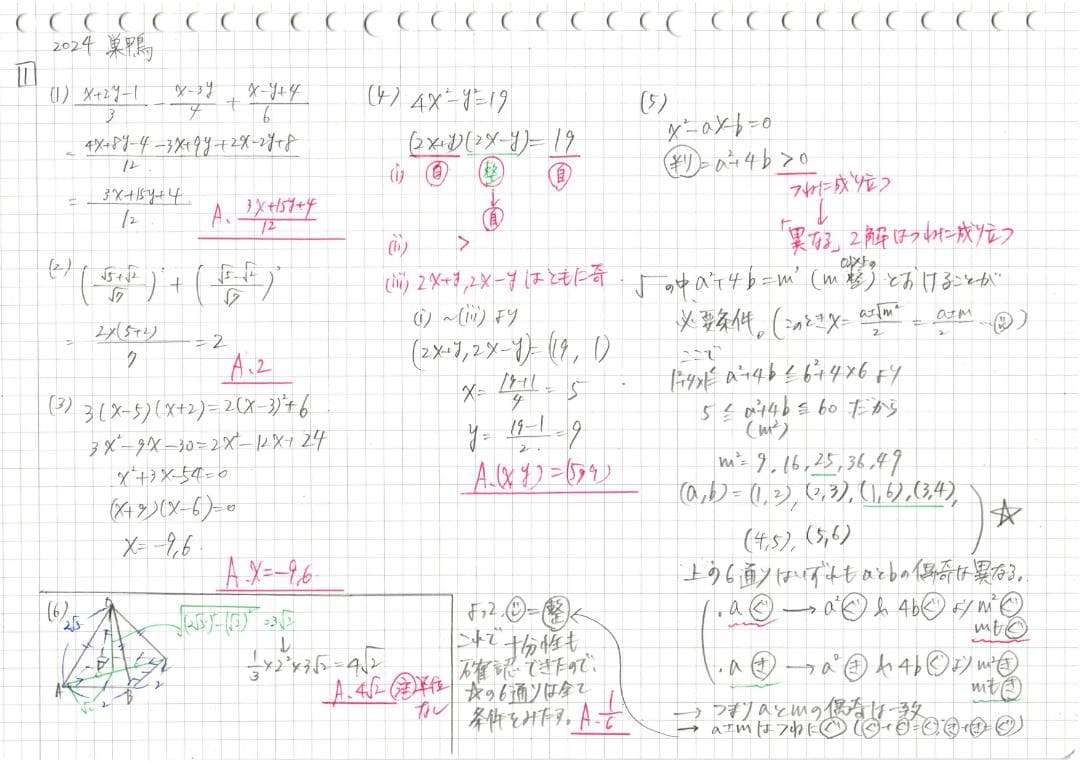 2024 巣鴨
1
(1) (x+2y-1)/3 - (x-3y)/4 + (x-y+4)/6
= (4x+8y-4-3x+9y+2x-2y+8)/12
= (3x+15y+4)/12
A. (3x+15y+4)/12
(2) ((√5+√2)/√7)² + ((√5-√2)/√7)²
= 2×(5+2)/7 = 2
A. 2
(3) 3(x-5)(x+2)=2(x-3)²+6
3x²-9x-30=2x²-12x+24
x²+3x-54=0
(x+9)(x-6)=0
x=-9,6
A. x=-9,6
(4) 4x²-y²=19
(2x+y)(2x-y)=19
(i) 自 整 自
↓
自
(ii) >
(iii) 2x+y, 2x-yはともに奇.
(i)~(iii)より
(2x+y, 2x-y)=(19, 1)
x=(19+1)/4=5
y=(19-1)/2=9
A. (x,y)=(5,9)
(5)
x²-ax-b=0
判=a²+4b>0
つねに成り立つ
↓
「異なる」2解はつねに成り立つ
√の中 a²+4b=m² (m 0以上の整)とおけることが
必要条件。(このときx=(a±√m²)/2=(a±m)/2…☺)
ここで
1²+4×1≦a²+4b≦6²+4×6より
5≦a²+4b≦60だから
(m²)
m²=9,16,25,36,49
(a,b)=(1,2),(2,3),(1,6),(3,4),
(4,5),(5,6)
☆
上の6通りはいずれもaとbの偶奇は異なる.
・aぐ→a²ぐ& 4bぐよりm²ぐ
mもぐ
・aき→a²き& 4bぐよりm²き
mもき
→つまりaとmの偶奇は一致
→a±mはつねにぐ(ぐ+ぐ=ぐ,き+き=ぐ)
よって,☺=整
これで十分性も
確認できたので,
☆の6通りは全て
条件をみたす。
A. 1/6
(6)
2√5
√((2√5)²-(√2)²)=3√2
↓
1/3×2²×3√2=4√2
A. 4√2 注単位なし
A
B
2
2
√2